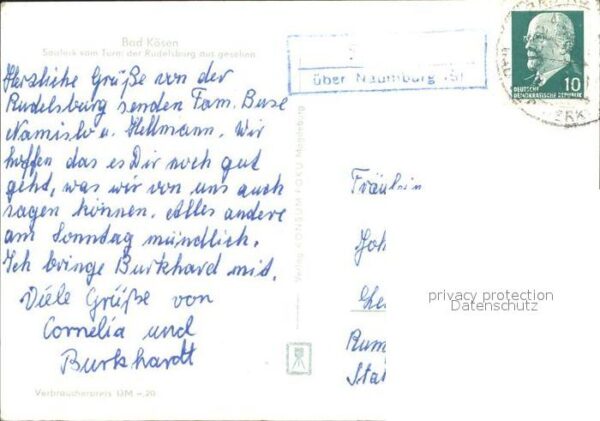 Bad Kösen
Saaleck vom Turm der Rudelsburg aus gesehen
Herzliche Grüße von der
Rudelsburg senden Fam. Buse
Namislo u. Hellmann. Wir
hoffen das es Dir noch gut
geht, was wir von uns auch
sagen können. Alles andere
am Sonntag mündlich.
Ich bringe Burkhard mit.
Viele Grüße von
Cornelia und
Burkhardt
Verbraucherpreis DM -,20
Verlag CONSUM FOKU Magdeburg
über Naumburg (S)
10
DEUTSCHE
DEMOKRATISCHE REPUBLIK
Fräulein
Joh
Rum
Sta
privacy protection
Datenschutz